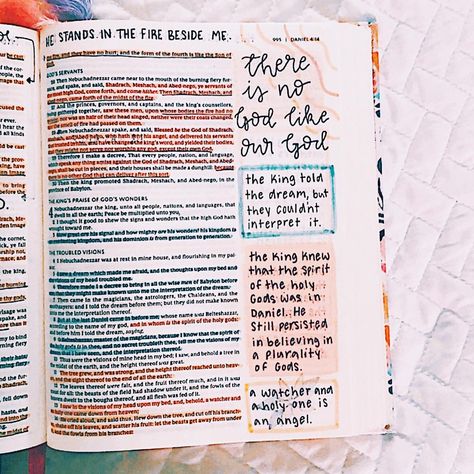 HE STANDS IN THE FIRE BESIDE ME.
995 | DANIEL 4:14
fire, and they have no hurt; and the form of the fourth is like the Son of
GOD'S SERVANTS
26 Then Nebuchadnezzar came near to the mouth of the burning fiery fur-
nace, and spake, and said, Shadrach, Meshach, and Abed-nego, ye servants of
the most high God, come forth, and come hither. Then Shadrach, Meshach, and
Abed-nego, came forth of the midst of the fire.
27 And the princes, governors, and captains, and the king's counsellors,
being gathered together, saw these men, upon whose bodies the fire had no
power, nor was an hair of their head singed, neither were their coats changed,
nor the smell of fire had passed on them.
28 Then Nebuchadnezzar spake, and said, Blessed be the God of Shadrach,
Meshach, and Abed-nego, who hath sent his angel, and delivered his servants
that trusted in him, and have changed the king's word, and yielded their bodies,
that they might not serve nor worship any god, except their own God.
29 Therefore I make a decree, That every people, nation, and language,
which speak any thing against the God of Shadrach, Meshach, and Abed-nego,
shall be cut in pieces, and their houses shall be made a dunghill: because
there is no other God that can deliver after this sort.
30 Then the king promoted Shadrach, Meshach, and Abed-nego, in the
province of Babylon.
THE KING'S PRAISE OF GOD'S WONDERS
4 Nebuchadnezzar the king, unto all people, nations, and languages, that
dwell in all the earth; Peace be multiplied unto you.
2 I thought it good to shew the signs and wonders that the high God hath
wrought toward me.
3 How great are his signs! and how mighty are his wonders! his kingdom is
an everlasting kingdom, and his dominion is from generation to generation.
THE TROUBLED VISIONS
4 I Nebuchadnezzar was at rest in mine house, and flourishing in my pal-
ace:
5 I saw a dream which made me afraid, and the thoughts upon my bed and
the visions of my head troubled me.
6 Therefore made I a decree to bring in all the wise men of Babylon before
me, that they might make known unto me the interpretation of the dream.
7 Then came in the magicians, the astrologers, the Chaldeans, and the
soothsayers: and I told the dream before them; but they did not make known
unto me the interpretation thereof.
8 But at the last Daniel came in before me, whose name was Belteshazzar,
according to the name of my god, and in whom is the spirit of the holy gods:
and before him I told the dream, saying,
9 O Belteshazzar, master of the magicians, because I know that the spirit of
the holy gods is in thee, and no secret troubleth thee, tell me the visions of my
dream that I have seen, and the interpretation thereof.
10 Thus were the visions of mine head in my bed; I saw, and behold a tree in
the midst of the earth, and the height thereof was great.
11 The tree grew, and was strong, and the height thereof reached unto heav-
en, and the sight thereof to the end of all the earth:
12 The leaves thereof were fair, and the fruit thereof much, and in it was
meat for all: the beasts of the field had shadow under it, and the fowls of the
heaven dwelt in the boughs thereof, and all flesh was fed of it.
13 I saw in the visions of my head upon my bed, and, behold, a watcher and
an holy one came down from heaven;
14 He cried aloud, and said thus, Hew down the tree, and cut off his branch-
es, shake off his leaves, and scatter his fruit: let the beasts get away from under
it, and the fowls from his branches:
there
is no
God like
our God
the king told
the dream, but
they couldn't
interpret it.
the king knew
that the spirit
of the holy
Gods was in
Daniel. He
still persisted
in believing in
a plurality
of Gods.
a watcher and
a holy one is
an angel.